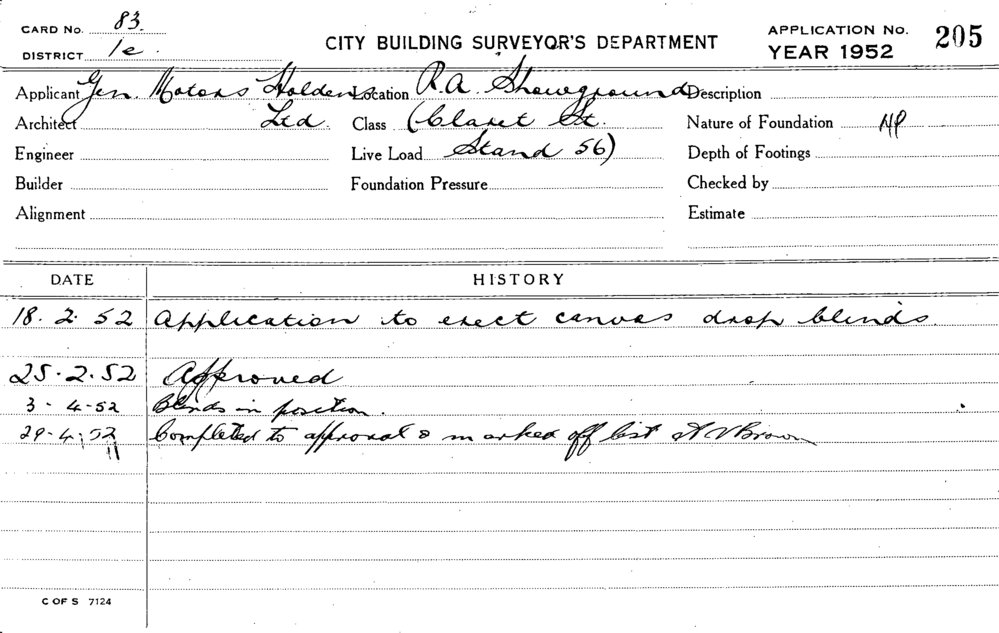 CARD No. 83.
DISTRICT 1e.
CITY BUILDING SURVEYOR'S DEPARTMENT
APPLICATION No. 205
YEAR 1952
Applicant Gen. Motors Holdens Location R.A. Showground Description
Architect Ltd. Class (Claret St. Nature of Foundation NP
Engineer Live Load Stand 56) Depth of Footings
Builder Foundation Pressure Checked by
Alignment Estimate
DATE HISTORY
18. 2. 52 Application to erect canvas drop blinds.
25. 2. 52 Approved
3 - 4-52 Blinds in position.
29-4-52 Completed to approval & marked off list Brown
C OF S 7124